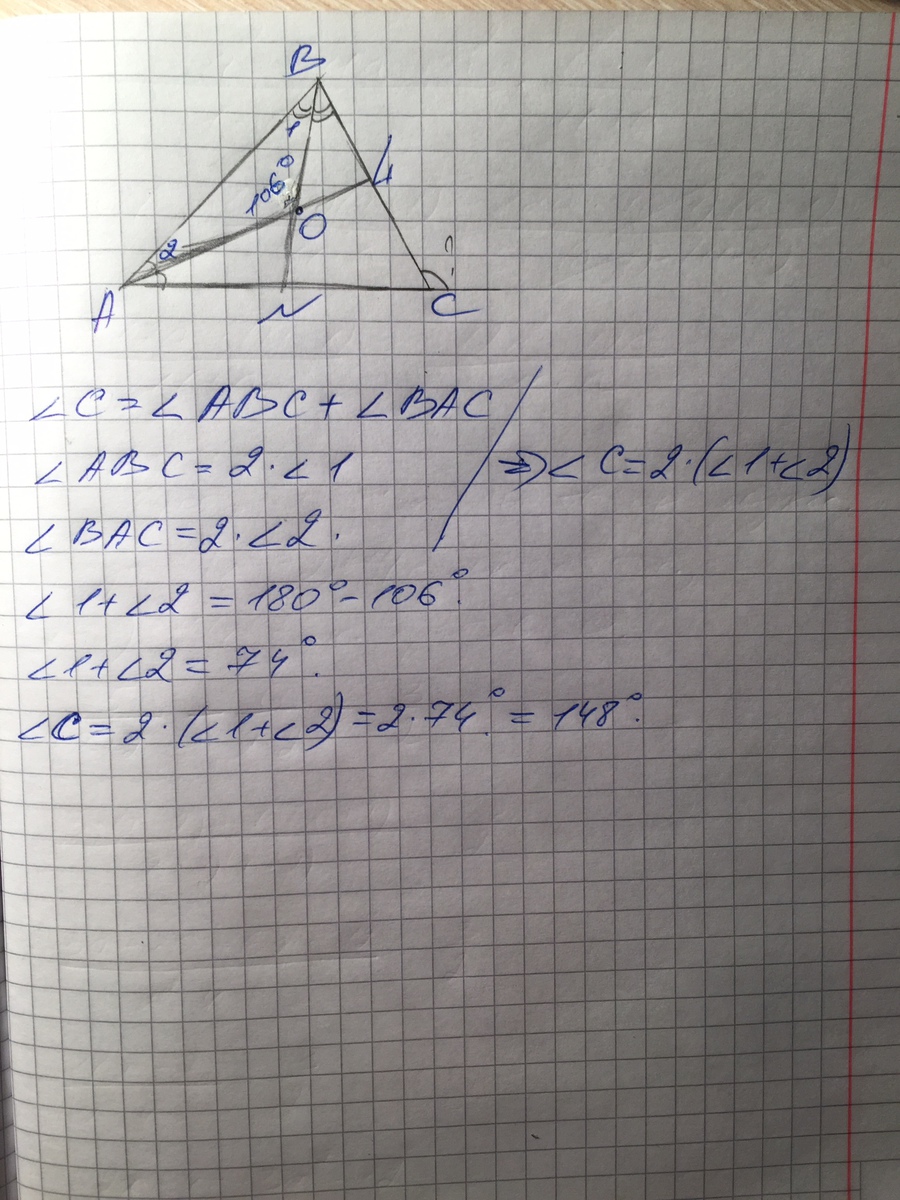 B
1
L
106°
O
2
?
A
N
C
∠C=∠ABC+∠BAC
∠ABC=2·∠1
⇒∠C=2·(∠1+∠2)
∠BAC=2·∠2.
∠1+∠2=180°-106°.
∠1+∠2=74°.
∠C=2·(∠1+∠2)=2·74°=148°.